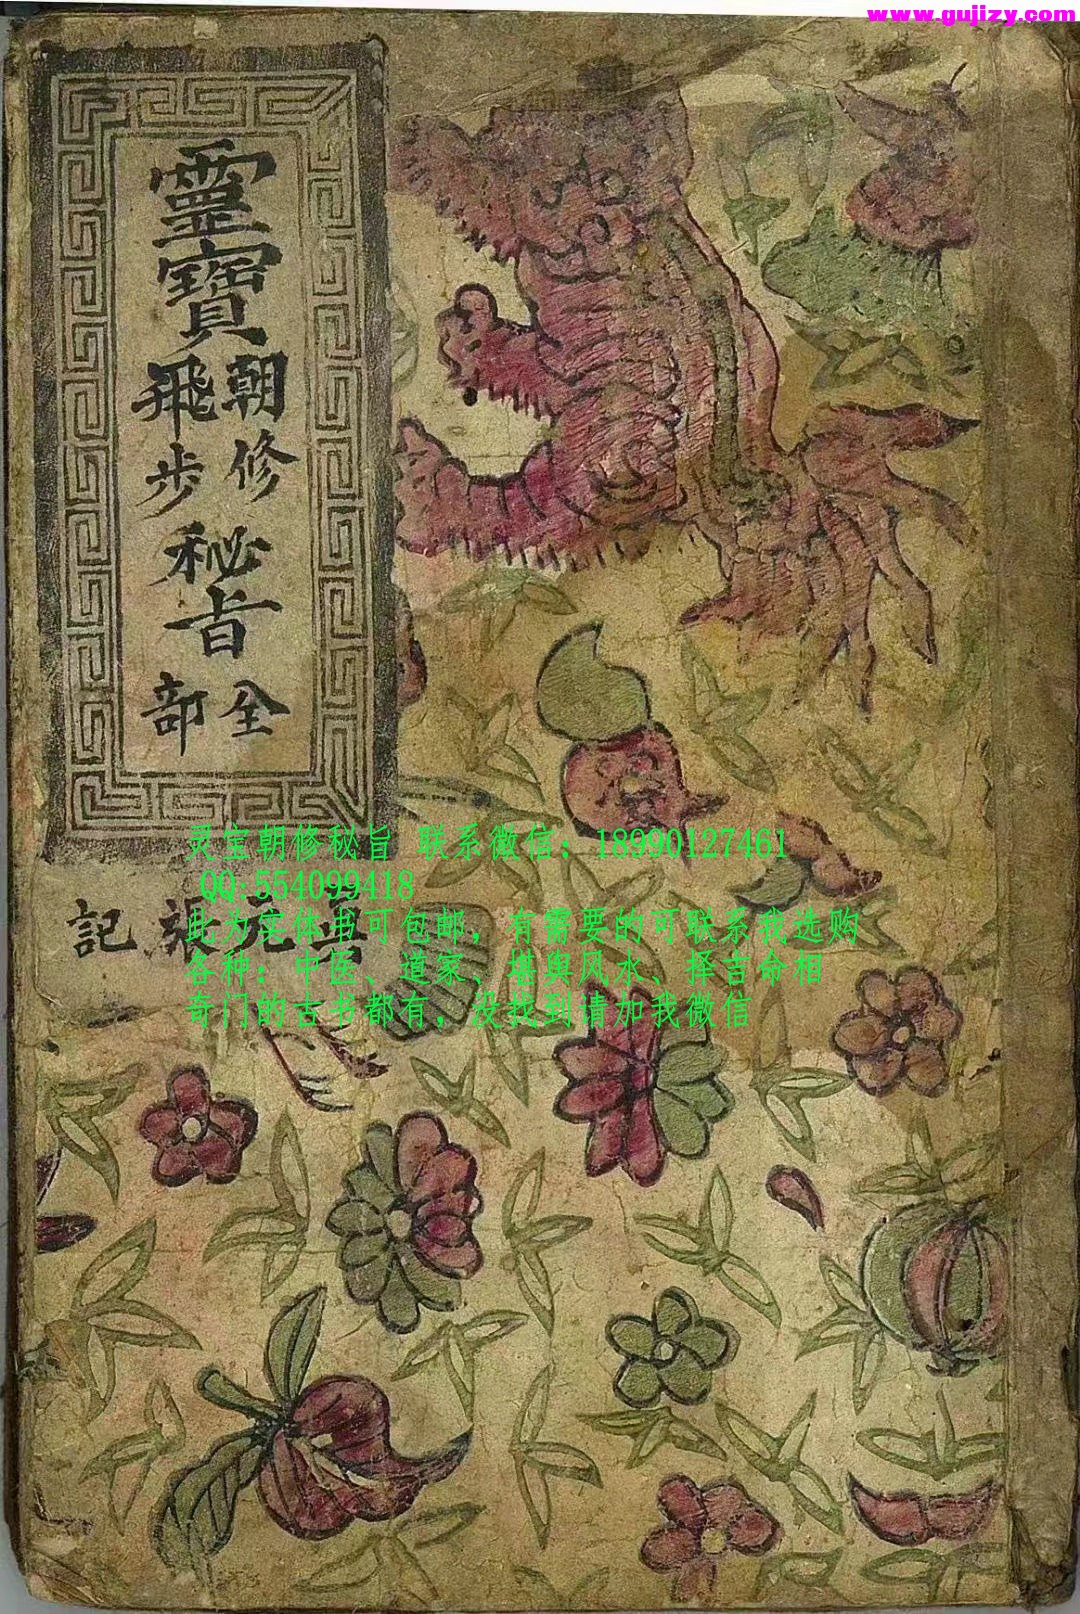 www.gujizy.com
靈寶
朝修
飛步
秘旨
全部
灵宝朝修秘旨 联系微信：18990127461
QQ:554099418
此为实体书可包邮，有需要的可联系我选购
各种：中医、道家、堪舆风水、择吉命相
奇门的古书都有，没找到请加我微信
張記